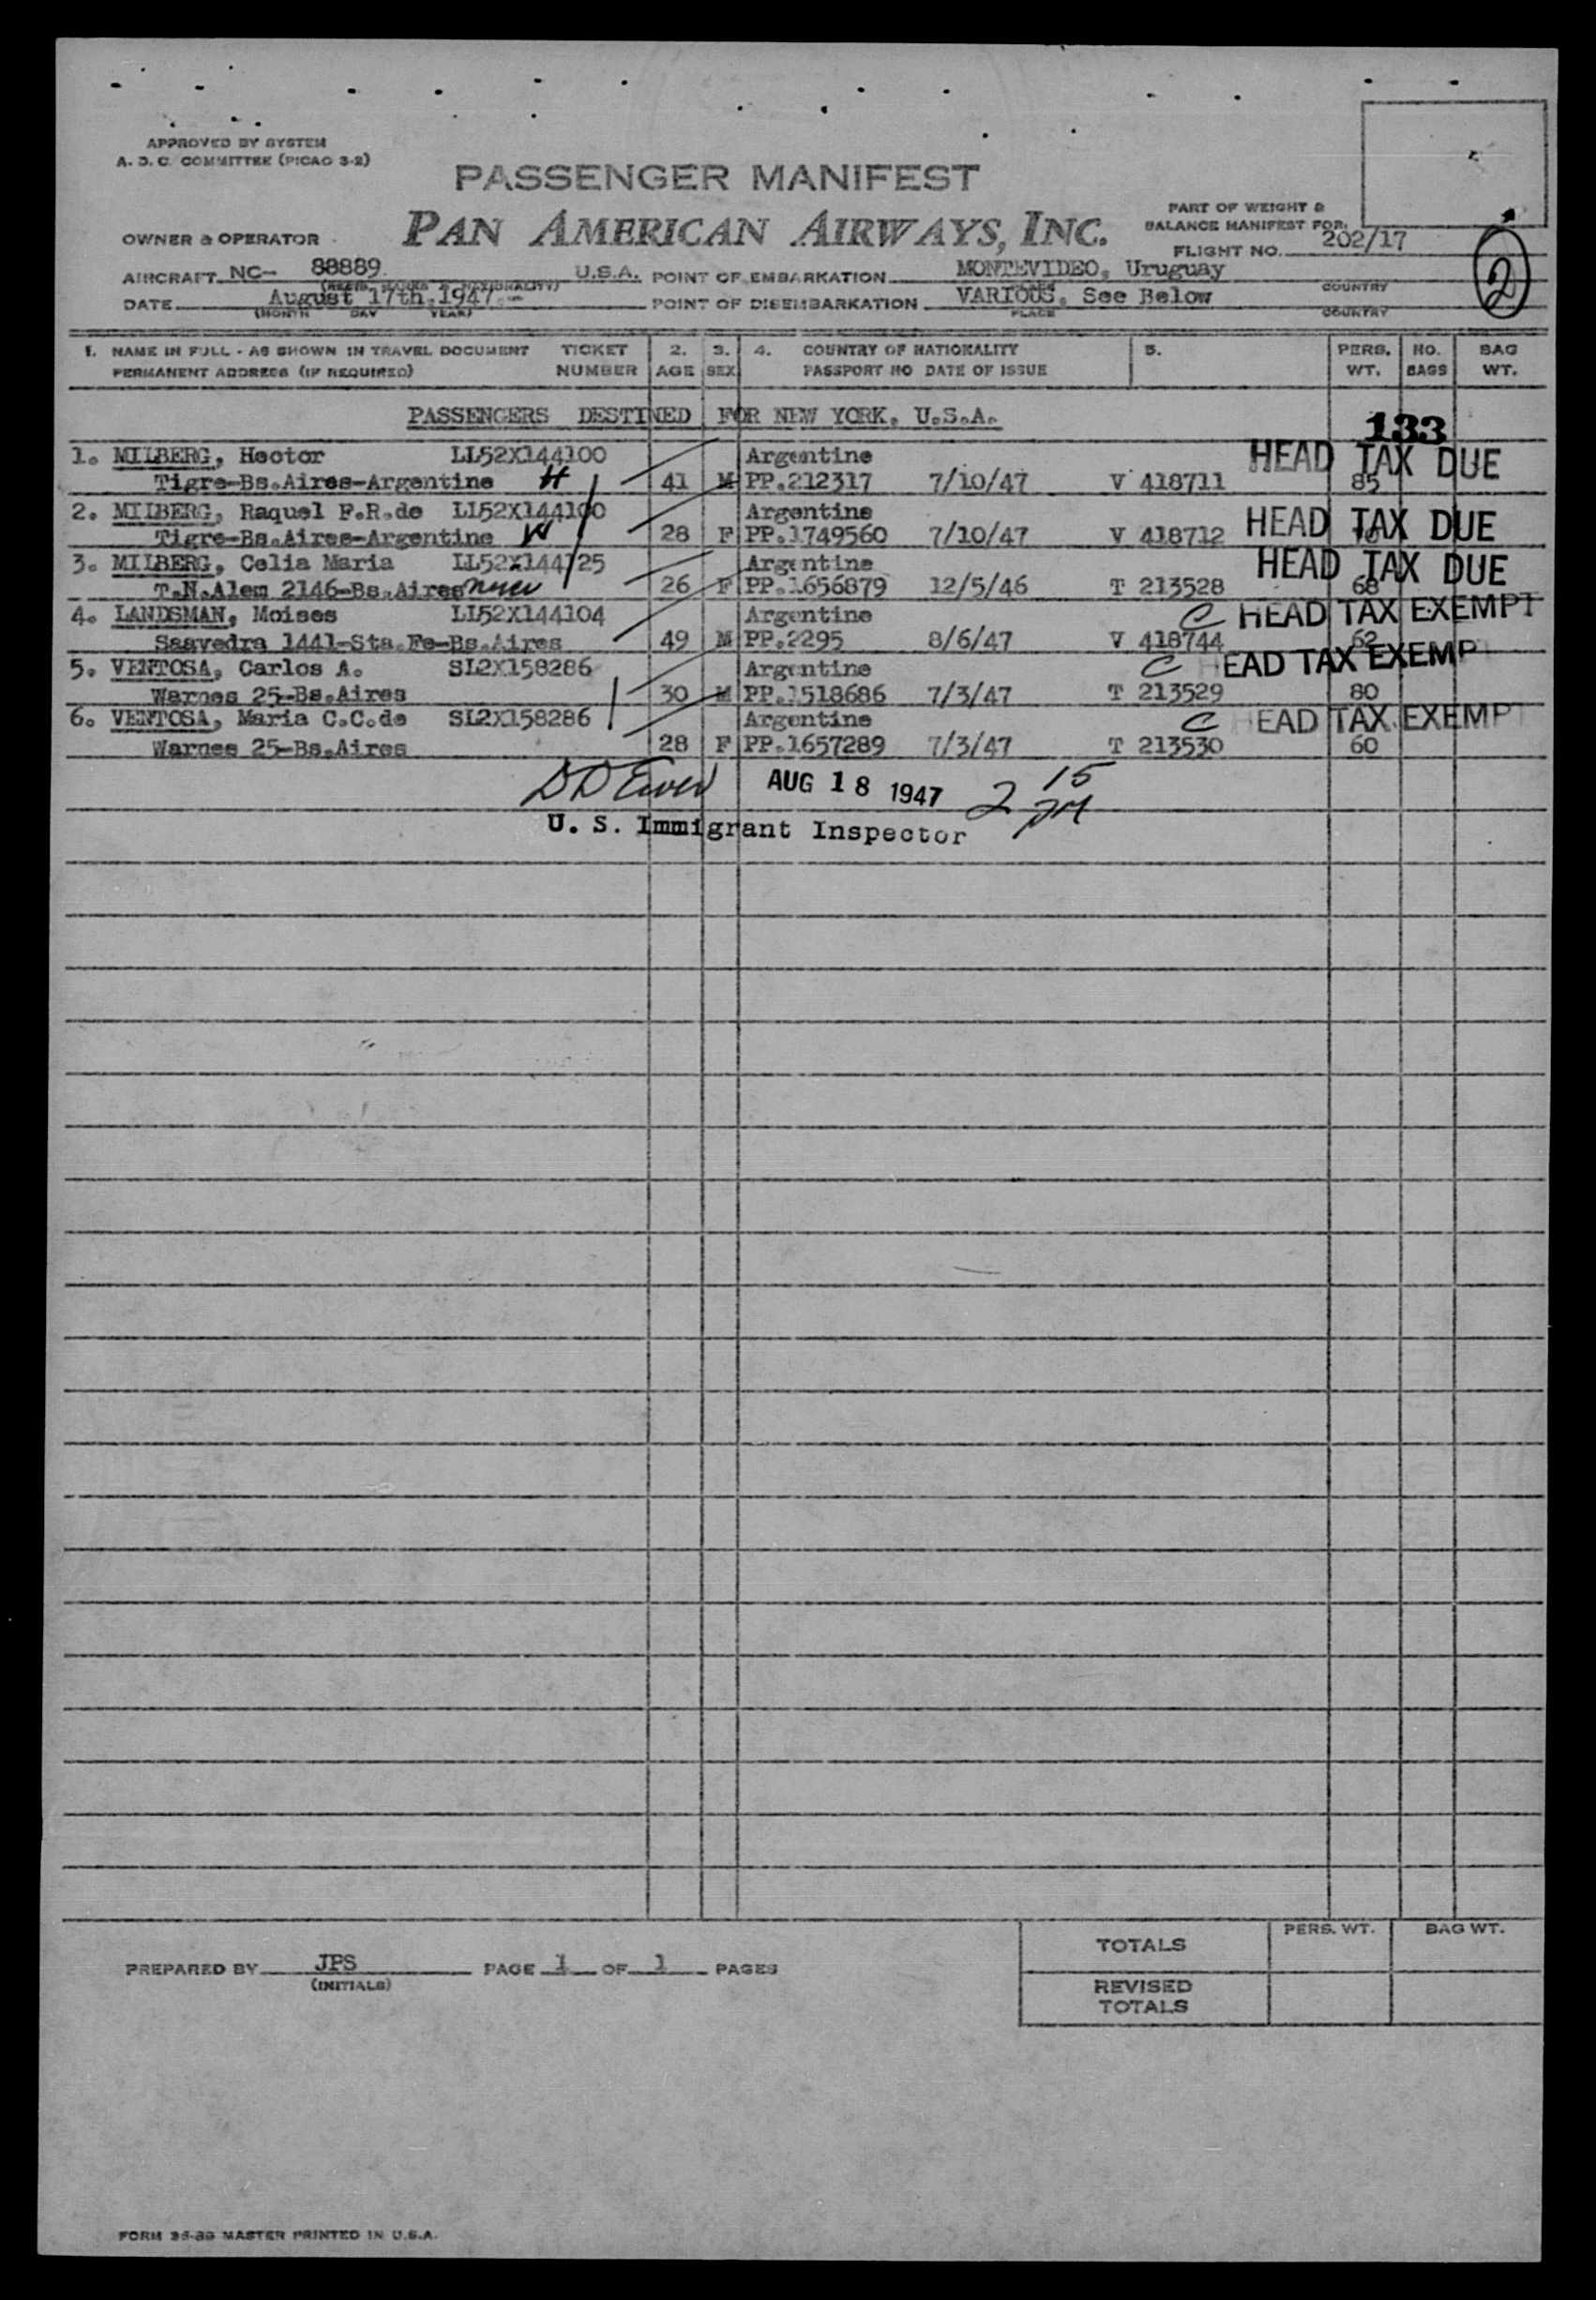 APPROVED BY SYSTEM
A. D. C. COMMITTEE (PICAO 3-2)
PASSENGER MANIFEST
PART OF WEIGHT &
BALANCE MANIFEST FOR:
OWNER & OPERATOR
PAN AMERICAN AIRWAYS, INC.
FLIGHT NO. 202/17
2
AIRCRAFT NC- 88889 U.S.A. POINT OF EMBARKATION MONTEVIDEO, Uruguay
COUNTRY
DATE August 17th, 1947.- POINT OF DISEMBARKATION VARIOUS. See Below
(MONTH DAY YEAR) PLACE COUNTRY
1. NAME IN FULL - AS SHOWN IN TRAVEL DOCUMENT TICKET 2. 3. 4. COUNTRY OF NATIONALITY 5. PERS. NO. BAG
PERMANENT ADDRESS (IF REQUIRED) NUMBER AGE SEX PASSPORT NO DATE OF ISSUE WT. BAGS WT.
PASSENGERS DESTINED FOR NEW YORK, U.S.A.
133
1. MILBERG, Hector LL52X144100 Argentine HEAD TAX DUE
Tigre-Bs.Aires-Argentine H 41 M PP.212317 7/10/47 V 418711 85
2. MILBERG, Raquel F.R.de LL52X144100 Argentine HEAD TAX DUE
Tigre-Bs.Aires-Argentine W 28 F PP.1749560 7/10/47 V 418712
3. MILBERG, Celia Maria LL52X144125 Argentine HEAD TAX DUE
T.N.Alem 2146-Bs.Aires 26 F PP.1656879 12/5/46 T 213528 68
4. LANDSMAN, Moises LL52X144104 Argentine C HEAD TAX EXEMPT
Saavedra 1441-Sta.Fe-Bs.Aires 49 M PP.2295 8/6/47 V 418744 62
5. VENTOSA, Carlos A. SL2X158286 Argentine C HEAD TAX EXEMP
Warnes 25-Bs.Aires 30 M PP.1518686 7/3/47 T 213529 80
6. VENTOSA, Maria C.C.de SL2X158286 Argentine C HEAD TAX EXEMPT
Warnes 25-Bs.Aires 28 F PP.1657289 7/3/47 T 213530 60
AUG 18 1947 2 15 PM
U. S. Immigrant Inspector
TOTALS PERS. WT. BAG WT.
PREPARED BY JPS PAGE 1 OF 1 PAGES
(INITIALS)
REVISED
TOTALS
FORM 35-39 MASTER PRINTED IN U.S.A.